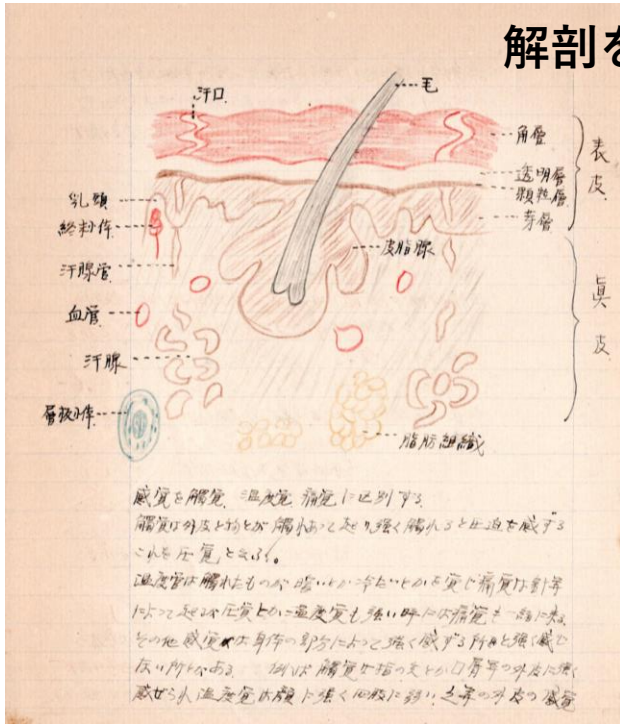 解剖を
汗口
毛
角層
透明層
顆粒層
芽層
表皮
乳頭
終末小体
汗腺管
皮脂腺
血管
真皮
汗腺
層板小体
脂肪組織
感覚を觸覚、温度覚、痛覚に区別する。
觸覚は外皮と物とが觸れあって起り強く觸れると圧迫を感ずる
これを圧覚と云ふ。
温度覚は觸れたものが暖いとか冷たいとかを覚じ痛覚は針等
によって起るが圧覚とか温度覚も強い時には痛覚も一緒に来る
その他感覚は身体の部分によって強く感ずる所と強く感じ
ない所とがある。 觸覚は指の尖とか口脣等の外皮に強く
感ぜられ温度覚は顔に強く に弱い 等の外皮の感覚